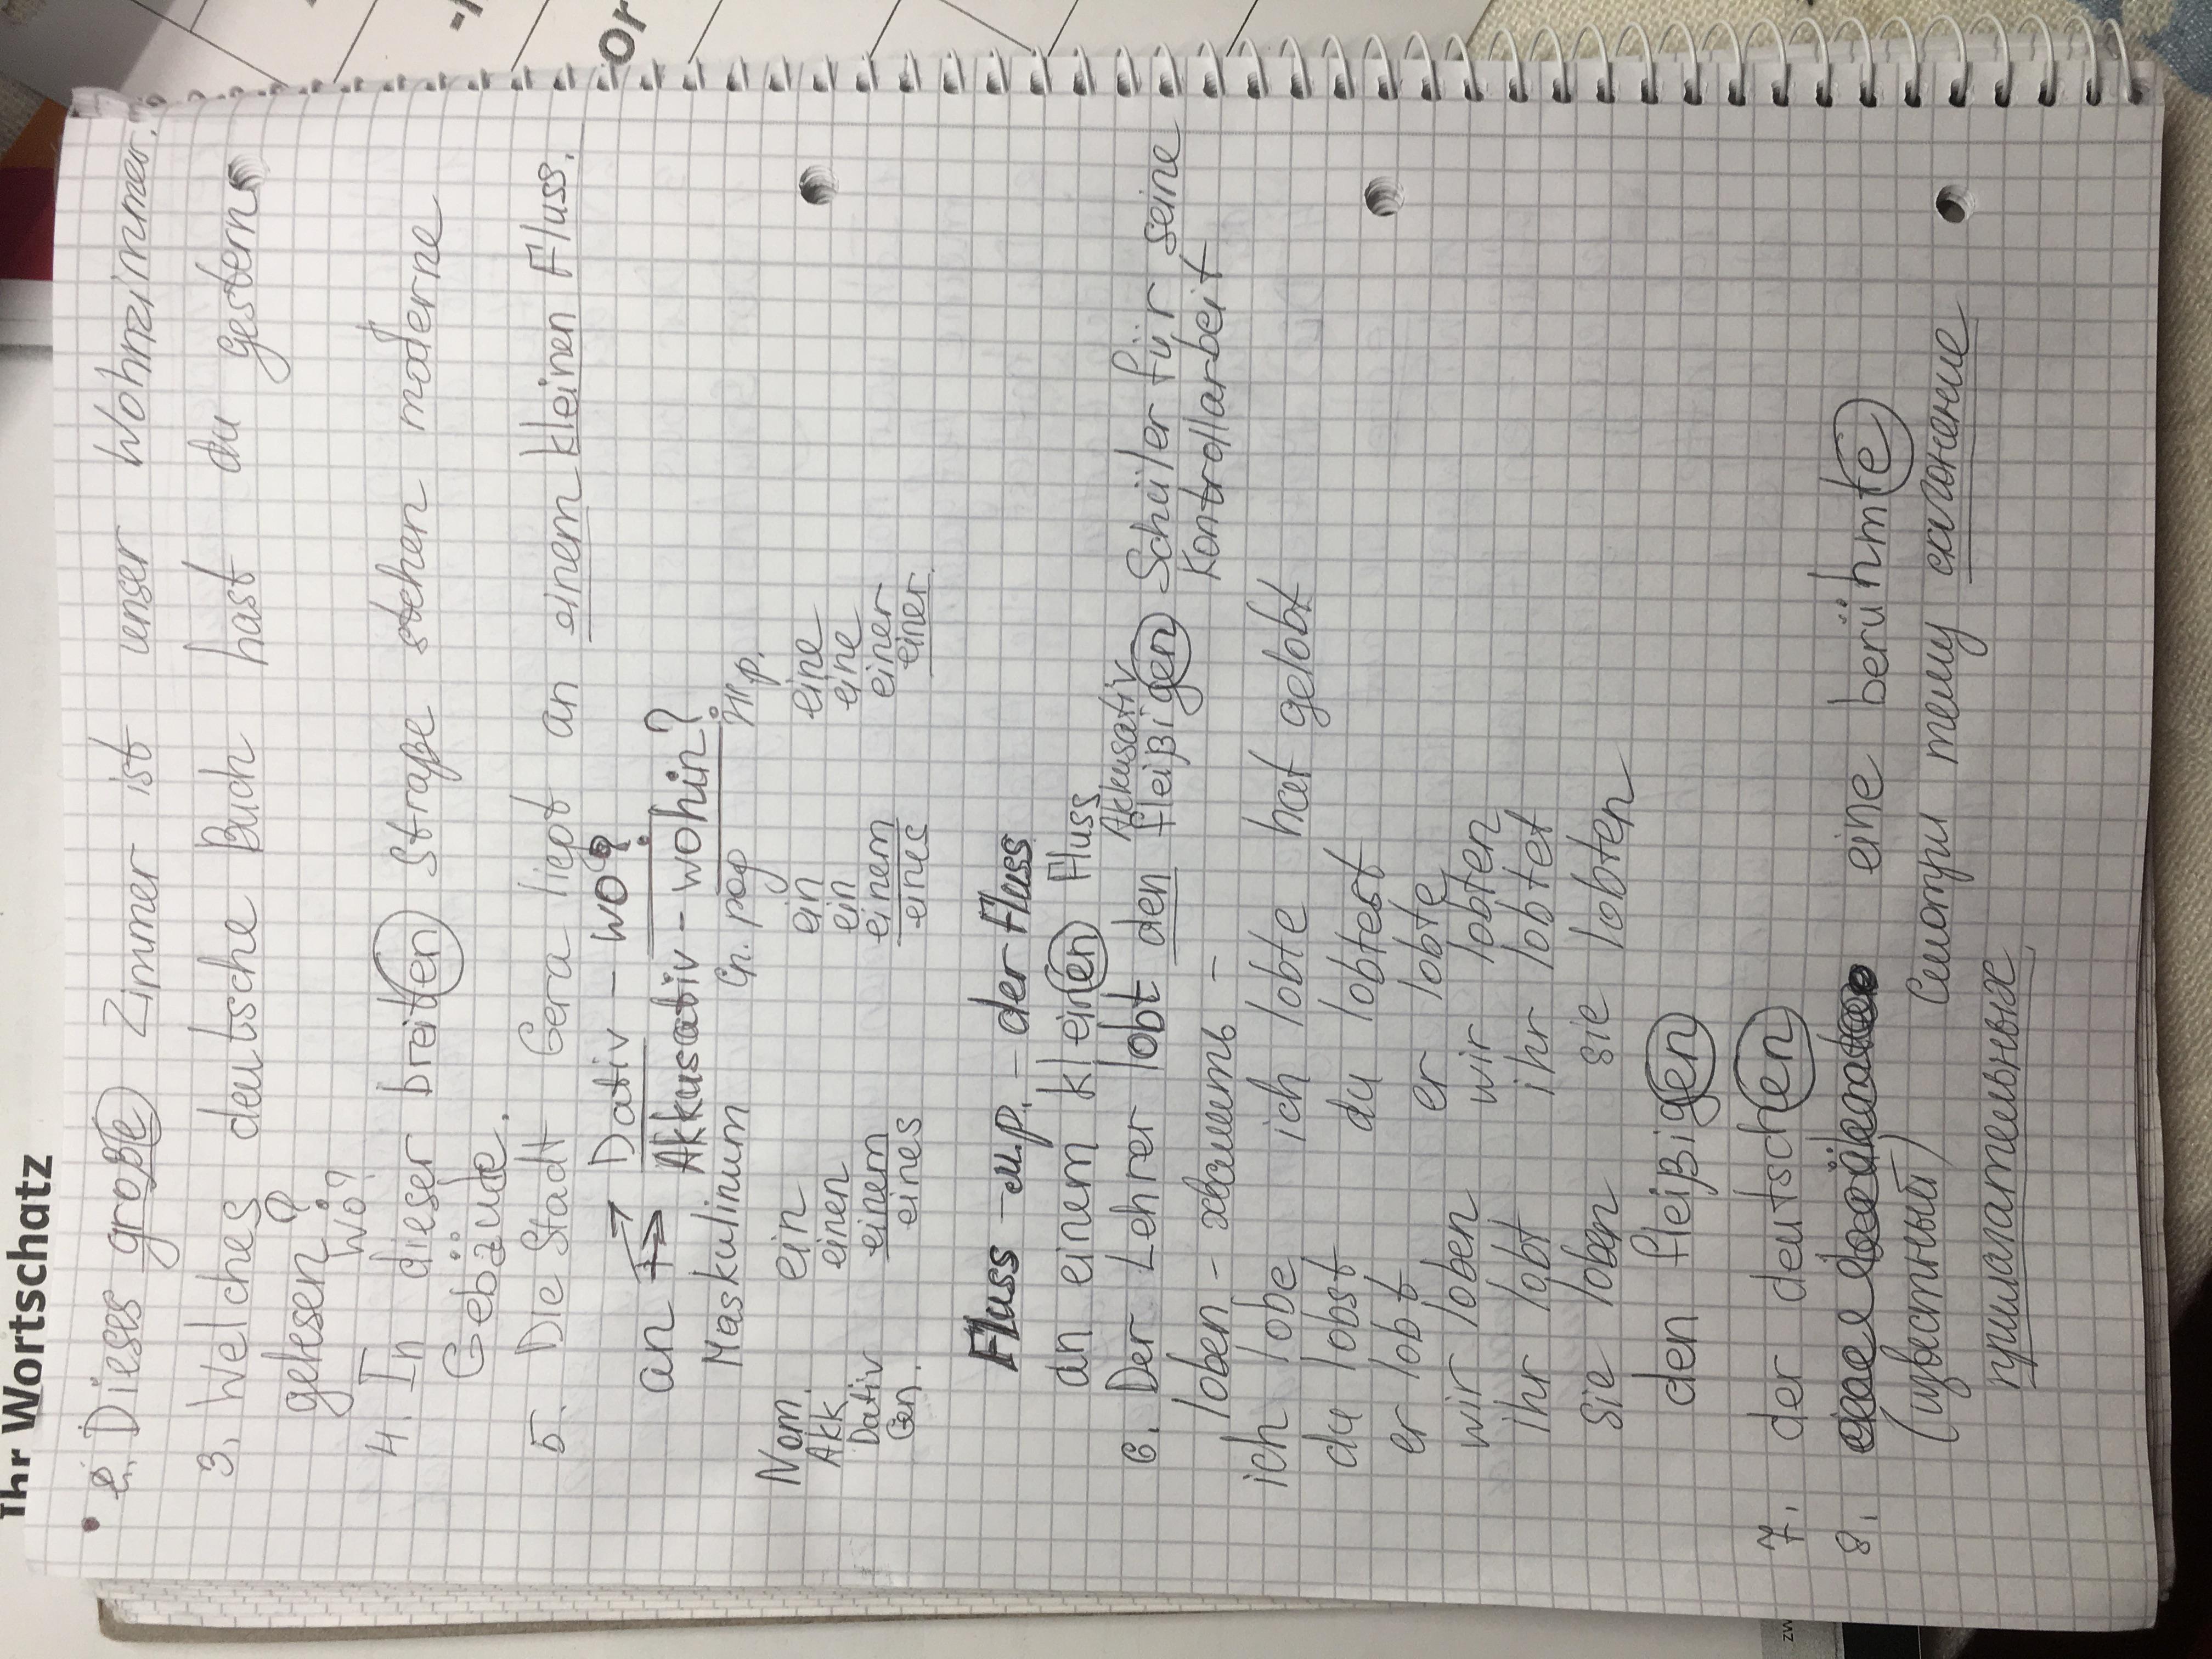 Ihr Wortschatz
2. Dieses große Zimmer ist unser Wohnzimmer.
3. Welches deutsche Buch hast du gestern
gelesen?
wo?
4. In dieser breiten Straße stehen moderne
Gebäude.
5. Die Stadt Gera liegt an einem kleinen Fluss.
an → Dativ – wo?
Akkusativ – wohin?
Maskulinum Ср. род Ж.р.
Nom. ein ein eine
Akk. einen ein eine
Dativ einem einem einer
Gen. eines eines einer.
Fluss – м.р. – der Fluss
an einem kleinen Fluss
Akkusativ
6. Der Lehrer lobt den fleißigen Schüler für seine
Kontrollarbeit
loben – хвалить –
ich lobe ich lobte hat gelobt
du lobst du lobtest
er lobt er lobte
wir loben wir lobten
ihr lobt ihr lobtet
sie loben sie lobten
den fleißigen
7. der deutschen
8. eine berühmte
(известный) Смотри тему склонение
прилагательных
or
zw